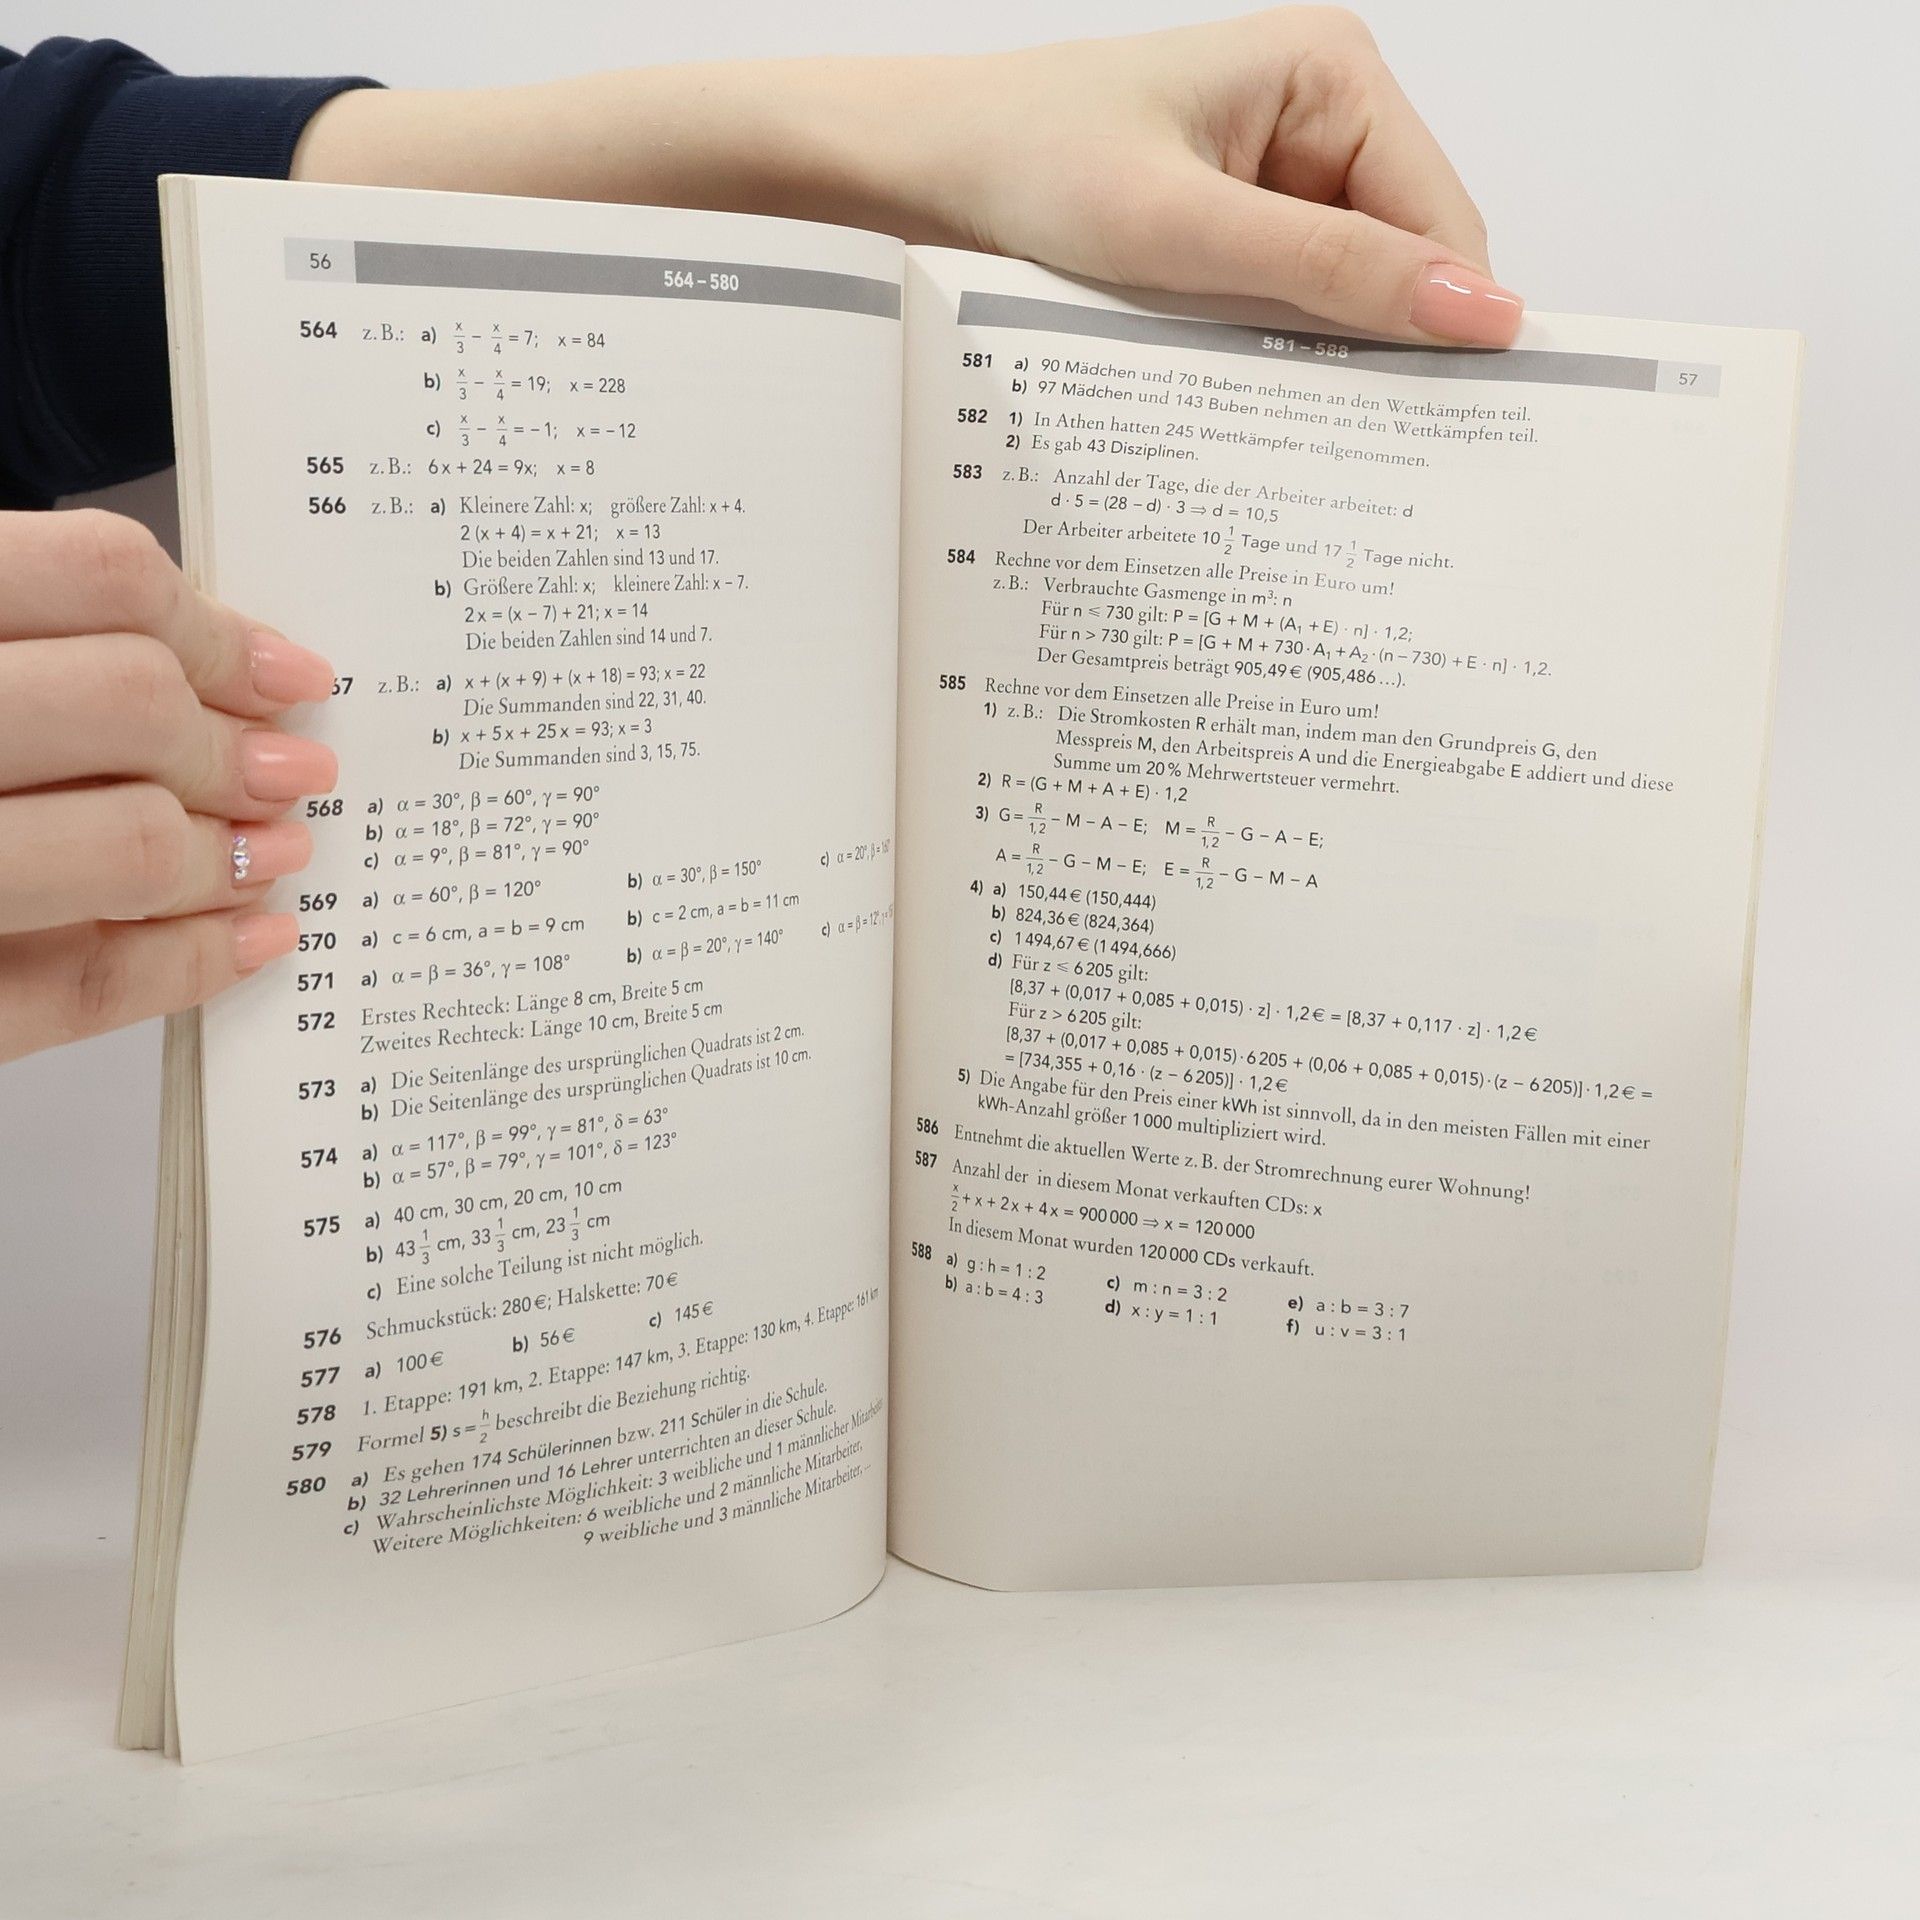 56
564 – 580
564 z. B.: a) x/3 – x/4 = 7; x = 84
b) x/3 – x/4 = 19; x = 228
c) x/3 – x/4 = – 1; x = – 12
565 z. B.: 6x + 24 = 9x; x = 8
566 z. B.: a) Kleinere Zahl: x; größere Zahl: x + 4.
2 (x + 4) = x + 21; x = 13
Die beiden Zahlen sind 13 und 17.
b) Größere Zahl: x; kleinere Zahl: x – 7.
2x = (x – 7) + 21; x = 14
Die beiden Zahlen sind 14 und 7.
67 z. B.: a) x + (x + 9) + (x + 18) = 93; x = 22
Die Summanden sind 22, 31, 40.
b) x + 5x + 25x = 93; x = 3
Die Summanden sind 3, 15, 75.
568 a) α = 30°, β = 60°, γ = 90°
b) α = 18°, β = 72°, γ = 90°
c) α = 9°, β = 81°, γ = 90°
569 a) α = 60°, β = 120° b) α = 30°, β = 150° c) α = 20°, β = 160°
570 a) c = 6 cm, a = b = 9 cm b) c = 2 cm, a = b = 11 cm
571 a) α = β = 36°, γ = 108° b) α = β = 20°, γ = 140° c) α = β = 12°,
572 Erstes Rechteck: Länge 8 cm, Breite 5 cm
Zweites Rechteck: Länge 10 cm, Breite 5 cm
573 a) Die Seitenlänge des ursprünglichen Quadrats ist 2 cm.
b) Die Seitenlänge des ursprünglichen Quadrats ist 10 cm.
574 a) α = 117°, β = 99°, γ = 81°, δ = 63°
b) α = 57°, β = 79°, γ = 101°, δ = 123°
575 a) 40 cm, 30 cm, 20 cm, 10 cm
b) 43 1/3 cm, 33 1/3 cm, 23 1/3 cm
c) Eine solche Teilung ist nicht möglich.
576 Schmuckstück: 280 €; Halskette: 70 €
577 a) 100 € b) 56 € c) 145 €
578 1. Etappe: 191 km, 2. Etappe: 147 km, 3. Etappe: 130 km, 4. Etappe: 161 km
579 Formel 5) s = h/2 beschreibt die Beziehung richtig.
580 a) Es gehen 174 Schülerinnen bzw. 211 Schüler in die Schule.
b) 32 Lehrerinnen und 16 Lehrer unterrichten an dieser Schule.
c) Wahrscheinlichste Möglichkeit: 3 weibliche und 1 männlicher Mitarbeiter
Weitere Möglichkeiten: 6 weibliche und 2 männliche Mitarbeiter,
9 weibliche und 3 männliche Mitarbeiter, ...
581 – 588
57
581 a) 90 Mädchen und 70 Buben nehmen an den Wettkämpfen teil.
b) 97 Mädchen und 143 Buben nehmen an den Wettkämpfen teil.
582 1) In Athen hatten 245 Wettkämpfer teilgenommen.
2) Es gab 43 Disziplinen.
583 z. B.: Anzahl der Tage, die der Arbeiter arbeitet: d
d · 5 = (28 – d) · 3 ⇒ d = 10,5
Der Arbeiter arbeitete 10 1/2 Tage und 17 1/2 Tage nicht.
584 Rechne vor dem Einsetzen alle Preise in Euro um!
z. B.: Verbrauchte Gasmenge in m³: n
Für n ≤ 730 gilt: P = [G + M + (A₁ + E) · n] · 1,2;
Für n > 730 gilt: P = [G + M + 730 · A₁ + A₂ · (n – 730) + E · n] · 1,2.
Der Gesamtpreis beträgt 905,49 € (905,486 ...).
585 Rechne vor dem Einsetzen alle Preise in Euro um!
1) z. B.: Die Stromkosten R erhält man, indem man den Grundpreis G, den
Messpreis M, den Arbeitspreis A und die Energieabgabe E addiert und diese
Summe um 20 % Mehrwertsteuer vermehrt.
2) R = (G + M + A + E) · 1,2
3) G = R/1,2 – M – A – E; M = R/1,2 – G – A – E;
A = R/1,2 – G – M – E; E = R/1,2 – G – M – A
4) a) 150,44 € (150,444)
b) 824,36 € (824,364)
c) 1 494,67 € (1 494,666)
d) Für z ≤ 6 205 gilt:
[8,37 + (0,017 + 0,085 + 0,015) · z] · 1,2 € = [8,37 + 0,117 · z] · 1,2 €
Für z > 6 205 gilt:
[8,37 + (0,017 + 0,085 + 0,015) · 6 205 + (0,06 + 0,085 + 0,015) · (z – 6 205)] · 1,2 € =
= [734,355 + 0,16 · (z – 6 205)] · 1,2 €
5) Die Angabe für den Preis einer kWh ist sinnvoll, da in den meisten Fällen mit einer
kWh-Anzahl größer 1 000 multipliziert wird.
586 Entnehmt die aktuellen Werte z. B. der Stromrechnung eurer Wohnung!
587 Anzahl der in diesem Monat verkauften CDs: x
x/2 + x + 2x + 4x = 900 000 ⇒ x = 120 000
In diesem Monat wurden 120 000 CDs verkauft.
588 a) g : h = 1 : 2 c) m : n = 3 : 2 e) a : b = 3 : 7
b) a : b = 4 : 3 d) x : y = 1 : 1 f) u : v = 3 : 1